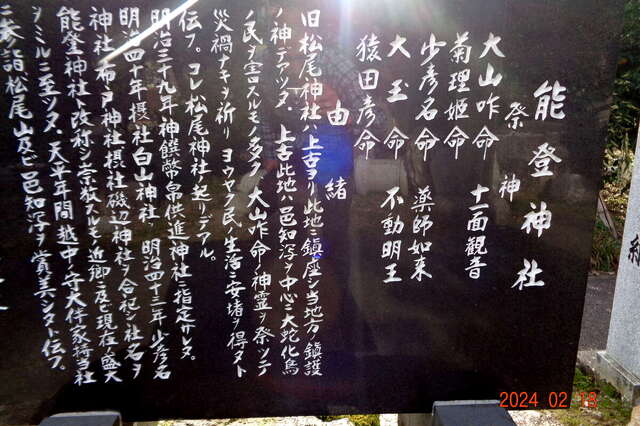 能登神社
祭神
大山咋命 十一面観音
菊理姫命
少彦名命 薬師如来
大玉命 不動明王
猿田彦命
由緒
旧松尾神社ハ上古ヨリ此地ニ鎮座シ当地方ノ鎮護
ノ神デアツタ、上古此地ハ邑知潟ヲ中心ニ大蛇化鳥
ノ民ヲ害スルモノ多ク大山咋命ノ神霊ヲ祭ツテ
災禍ナキヲ祈リヨウヤク民ノ生活ニ安堵ヲ得タト
伝フ。コレ松尾神社ノ起リデアル。
明治三十九年神饌幣帛供進神社ニ指定サレタ。
明治四十年摂社白山神社、明治四十三年少彦名
神社、布戸神社摂社磯辺神社ヲ合祀シ社名ヲ
能登神社ト改称シ宗敬スルモノ近郷ニ及ビ現在ノ盛大
ヲミルニ至ツタ、天平年間越中ノ守大伴家持当社
ニ参詣松尾山及ビ邑知潟ヲ賞美シタト伝フ。
2024 02 18